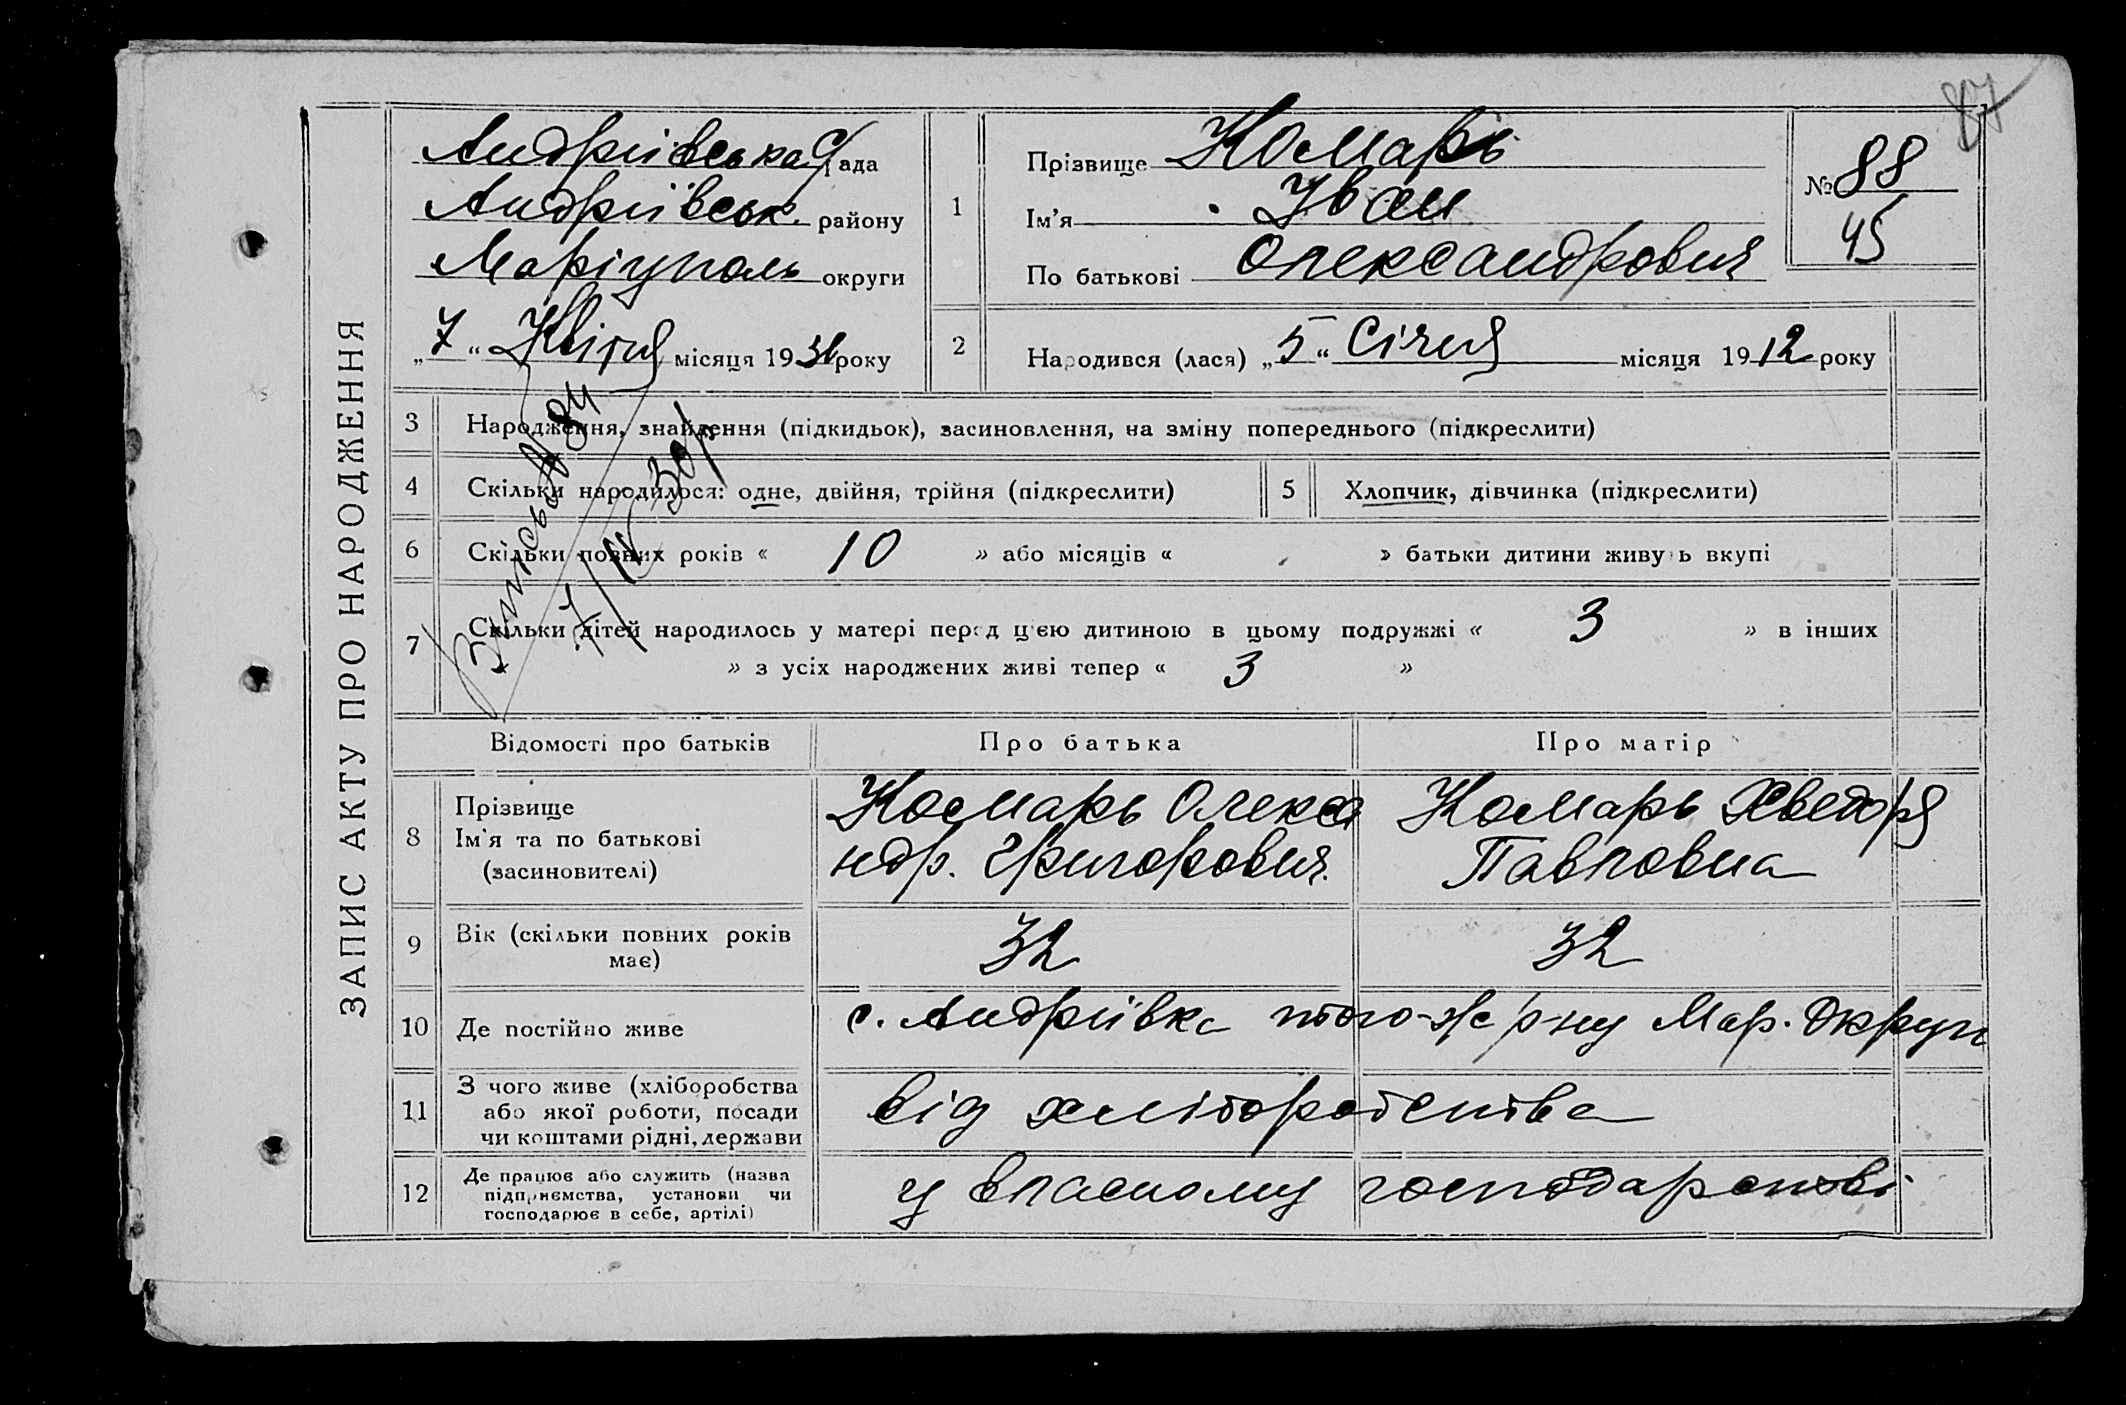 87
ЗАПИС АКТУ ПРО НАРОДЖЕННЯ
Андріївська с/рада
Андріївськ. району
Маріуполь округи
„7“ Квітня місяця 19 року
1
Прізвище Комарь
Ім'я Іван
По батькові Олександрович
№ 88
45
2
Народився (лася) „5“ Січня місяця 1912 року
3 Народження, знайдення (підкидьок), засиновлення, на зміну попереднього (підкреслити)
4 Скільки народилося: одне, двійня, трійня (підкреслити)
5 Хлопчик, дівчинка (підкреслити)
6 Скільки повних років « 10 » або місяців « » батьки дитини живуть вкупі
7 Скільки дітей народилось у матері перед цією дитиною в цьому подружжі « 3 » в інших
» з усіх народжених живі тепер « 3 »
7/IV 30 р
Відомості про батьків Про батька Про матір
8 Прізвище
Ім'я та по батькові
(засиновителі)
Комарь Олекса
ндр. Григорович.
Комарь Хведоря
Павловна
9 Вік (скільки повних років
має)
32 32
10 Де постійно живе с. Андріївка того-ж р-ну Мар. Округи
11 З чого живе (хліборобства
або якої роботи, посади
чи коштами рідні, держави
від хліборобства
12 Де працює або служить (назва
підприємства, установи чи
господарює в себе, артілі)
у власному господарстві